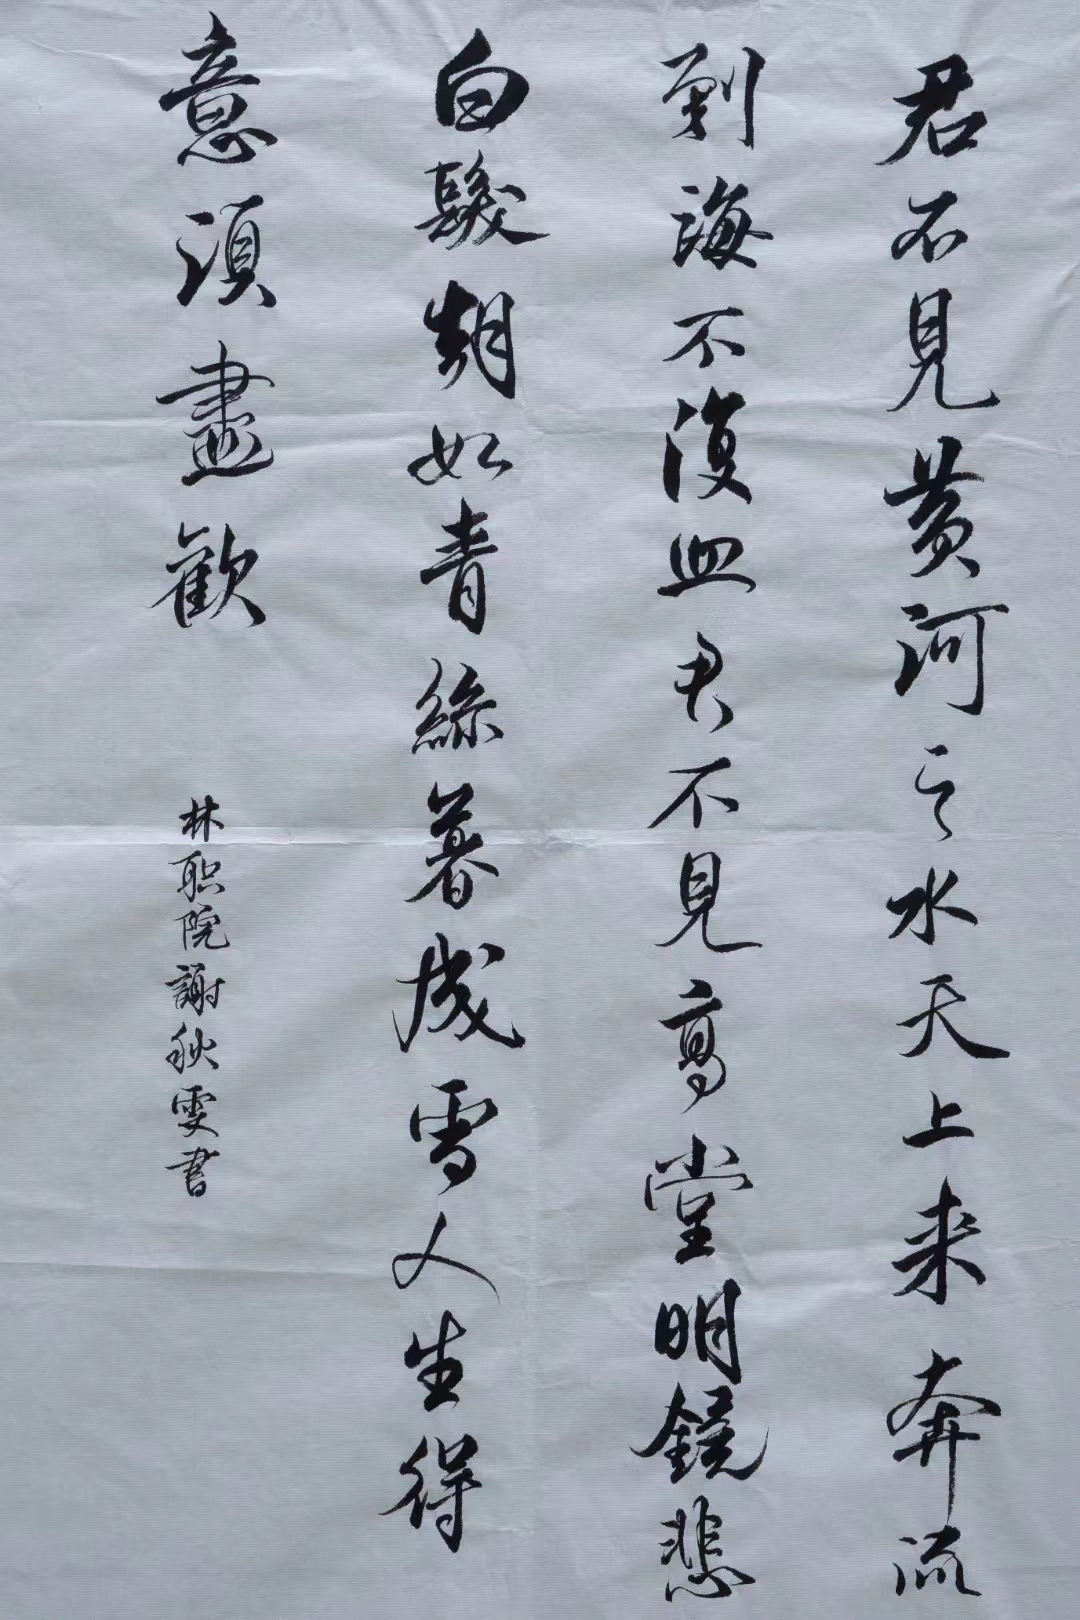 君不見黄河之水天上来奔流
到海不復回君不見高堂明鏡悲
白髮朝如青絲暮成雪人生得
意須盡歡
林职院謝秋雯書